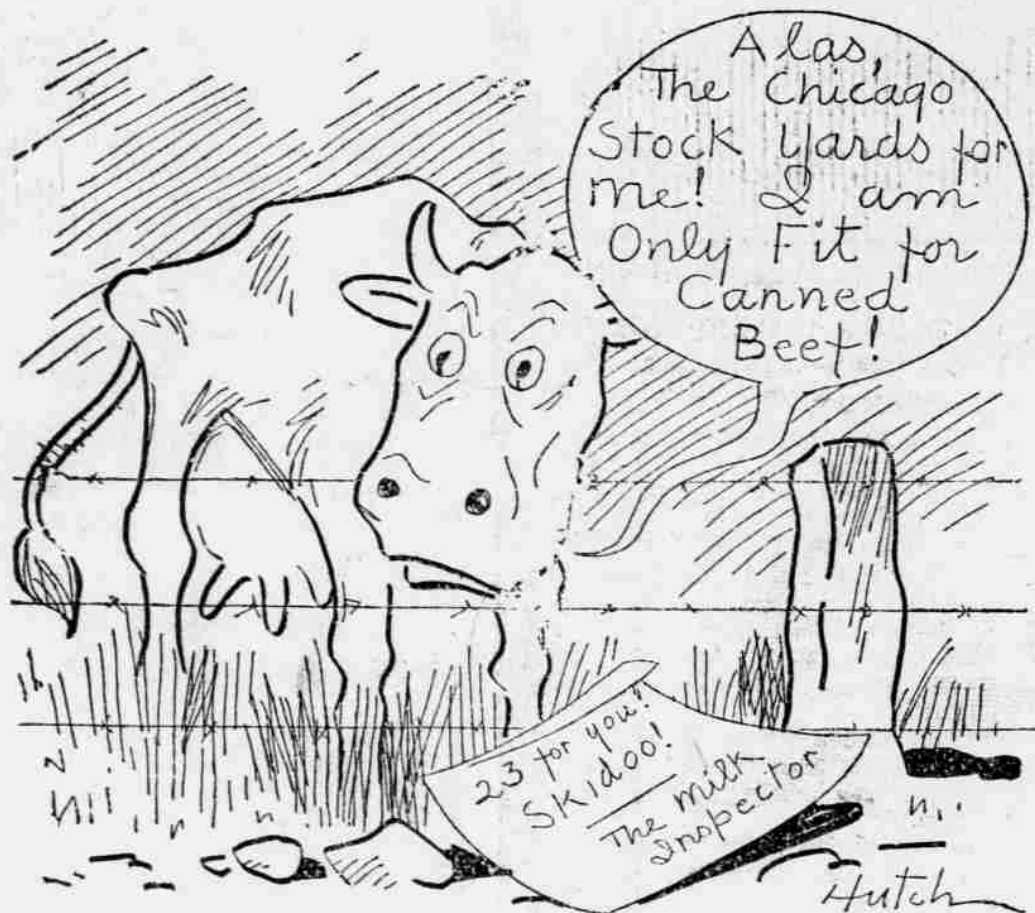 Alas,
The Chicago
Stock Yards for
me! I am
Only Fit for
Canned
Beef!
23 for you!
Skidoo!
The Milk
Inspector
Hutch